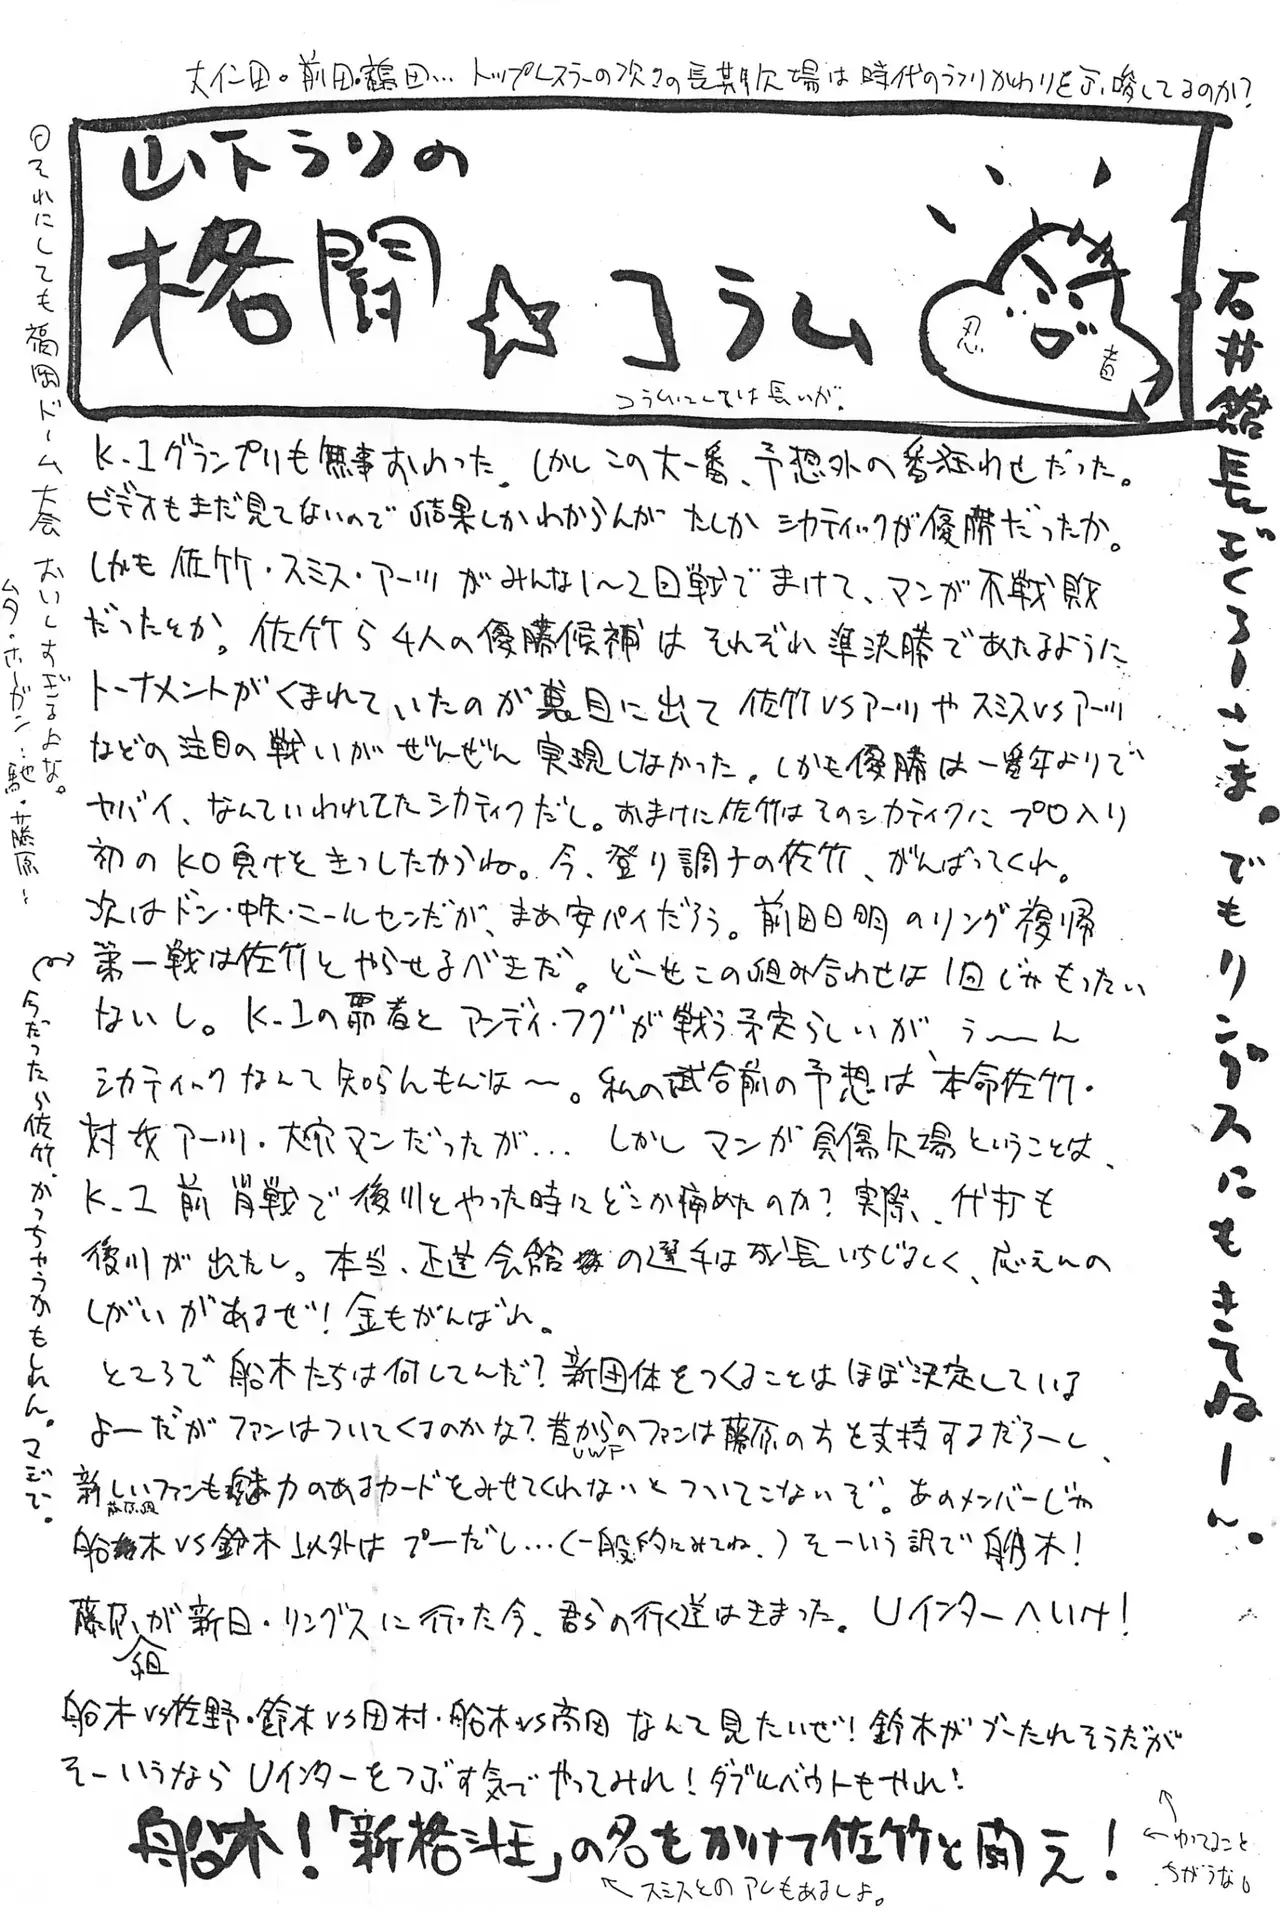 大仁田。前田・鶴田… トップレスラーの次々の長期欠場は時代のうつりかわりを示唆してるのか?
山下うりの
格闘☆コラム
忍 者
コラムにしては長いが。
石井館長ごくろーさま。でもリングスにもきてねーん。
それにしても福岡ドーム大会おいしすぎるよな。
ムタ・ホーガン…馳・藤原〜
今だったら佐竹、かっちゃうかもしれん。マジで。
K-1グランプリも無事おわった。しかしこの大一番、予想外の番狂わせだった。
ビデオもまだ見てないので結果しかわからんがたしかシカティックが優勝だったか。
しかも佐竹・スミス・アーツがみんな1〜2回戦でまけて、マンが不戦敗
だったとか。佐竹ら4人の優勝候補はそれぞれ準決勝であたるように
トーナメントがくまれていたのが裏目に出て佐竹VSアーツやスミスVSアーツ
などの注目の戦いがぜんぜん実現しなかった。しかも優勝は一番年よりで
ヤバイ、なんていわれてたシカティクだし。おまけに佐竹はそのシカティクにプロ入り
初のKO負けをきっしたからね。今、登り調子の佐竹、がんばってくれ。
次はドン・中矢・ニールセンだが、まあ安パイだろう。前田日明のリング復帰
第一戦は佐竹とやらせるべきだ。どーせこの組み合わせは1回じゃもったい
ないし。K-1の覇者とアンディ・フグが戦う予定らしいが、う〜〜ん
シカティックなんて知らんもんな〜。私の試合前の予想は、本命佐竹・
対抗アーツ・大穴マンだったが… しかしマンが負傷欠場ということは、
K-1前哨戦で後川とやった時にどこか痛めたのか?実際、代打も
後川が出たし。本当、正道会館の選手は成長いちじるしく、応えんの
しがいがあるぜ!金もがんばれ。
ところで船木たちは何してんだ?新団体をつくることはほぼ決定している
よーだがファンはついてくるのかな?昔からのファンは藤原の方を支持するだろーし、
UWF
新しいファンも魅力のあるカードをみせてくれないとついてこないぞ。あのメンバーじゃ
藤原組
船木VS鈴木以外はプーだし…(一般的にみてね。)そーいう訳で船木!
藤原組が新日・リングスに行った今、君らの行く道はきまった。Uインターへいけ!
船木VS佐野・鈴木VS田村・船木VS高田なんて見たいぜ!鈴木がブーたれそうだが
そーいうならUインターをつぶす気でやってみれ!ダブルベウトもやれ!
船木!「新格斗王」の名をかけて佐竹と闘え!
←ゆってること
ちがうな。
スミスとのアレもあるしよ。